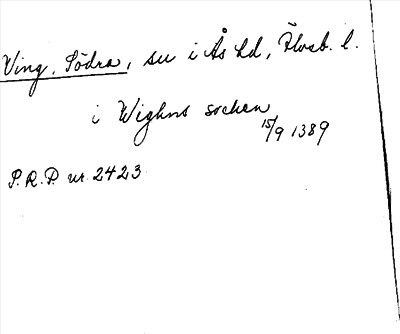 Ving, Södra, sn i Ås hd, Älvsb. l.
i Wighns sochen
15/9 1389
P.R.P. nr 2423